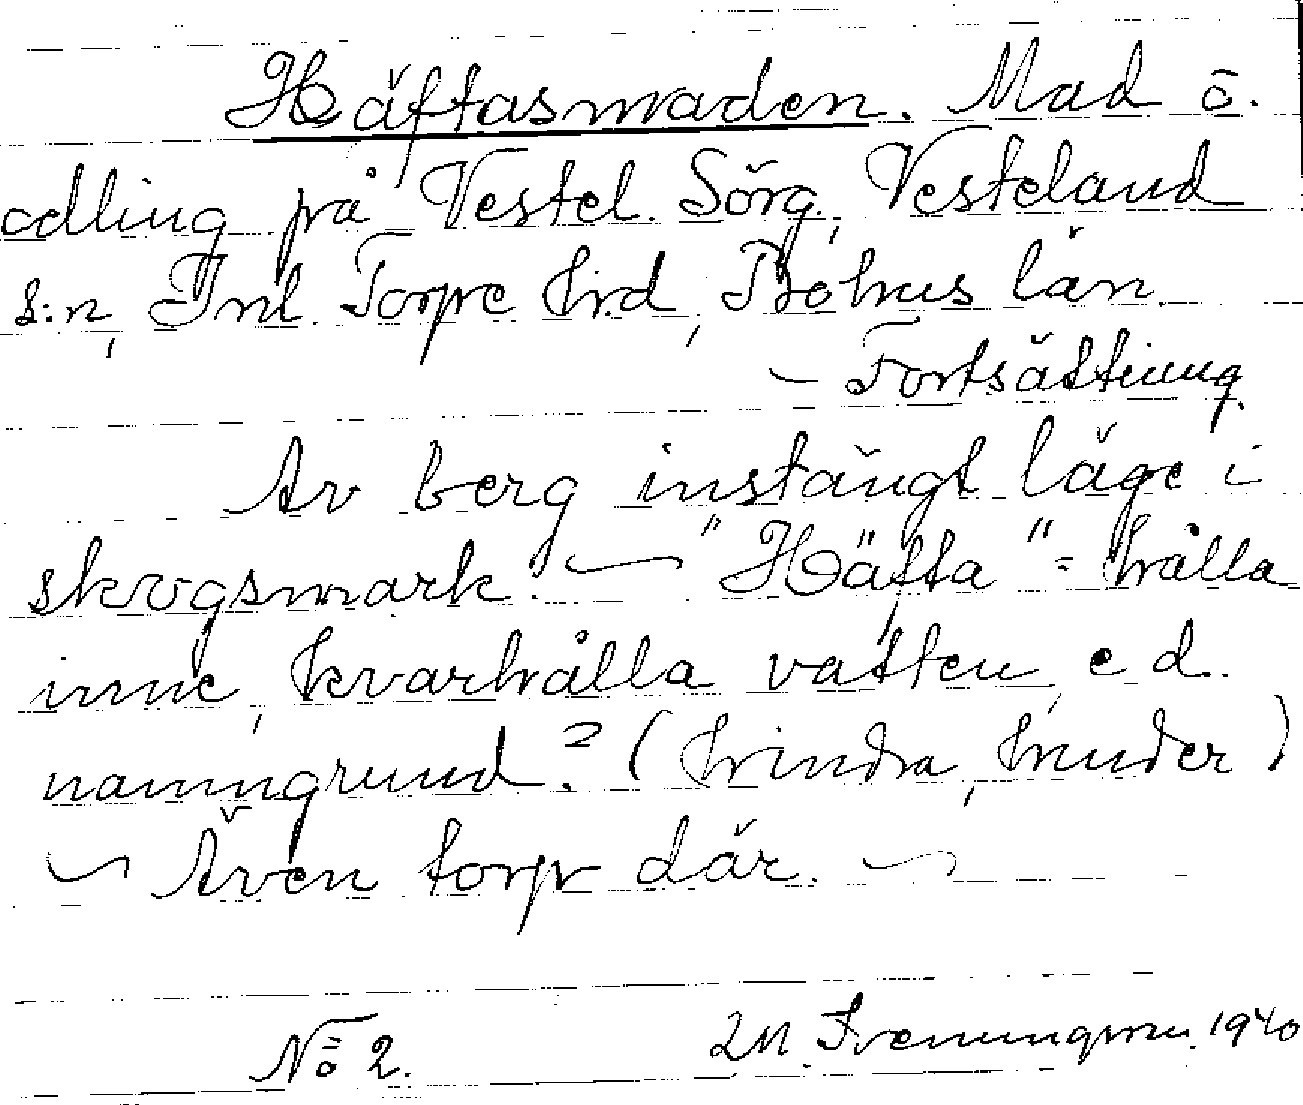 Häftasmaden. Mad o.
odling på Vestel. Sörg, Vesteland
s:n, Inl. Torpe hrd, Bohus län.
– Fortsättning.
Av berg instängt läge i
skogsmark. — "Häfta" = hålla
inne, kvarhålla vatten, e d.
namngrund? (hindra, hinder)
~ Även torp där. ~
No 2.
M. Svenungsson 1940